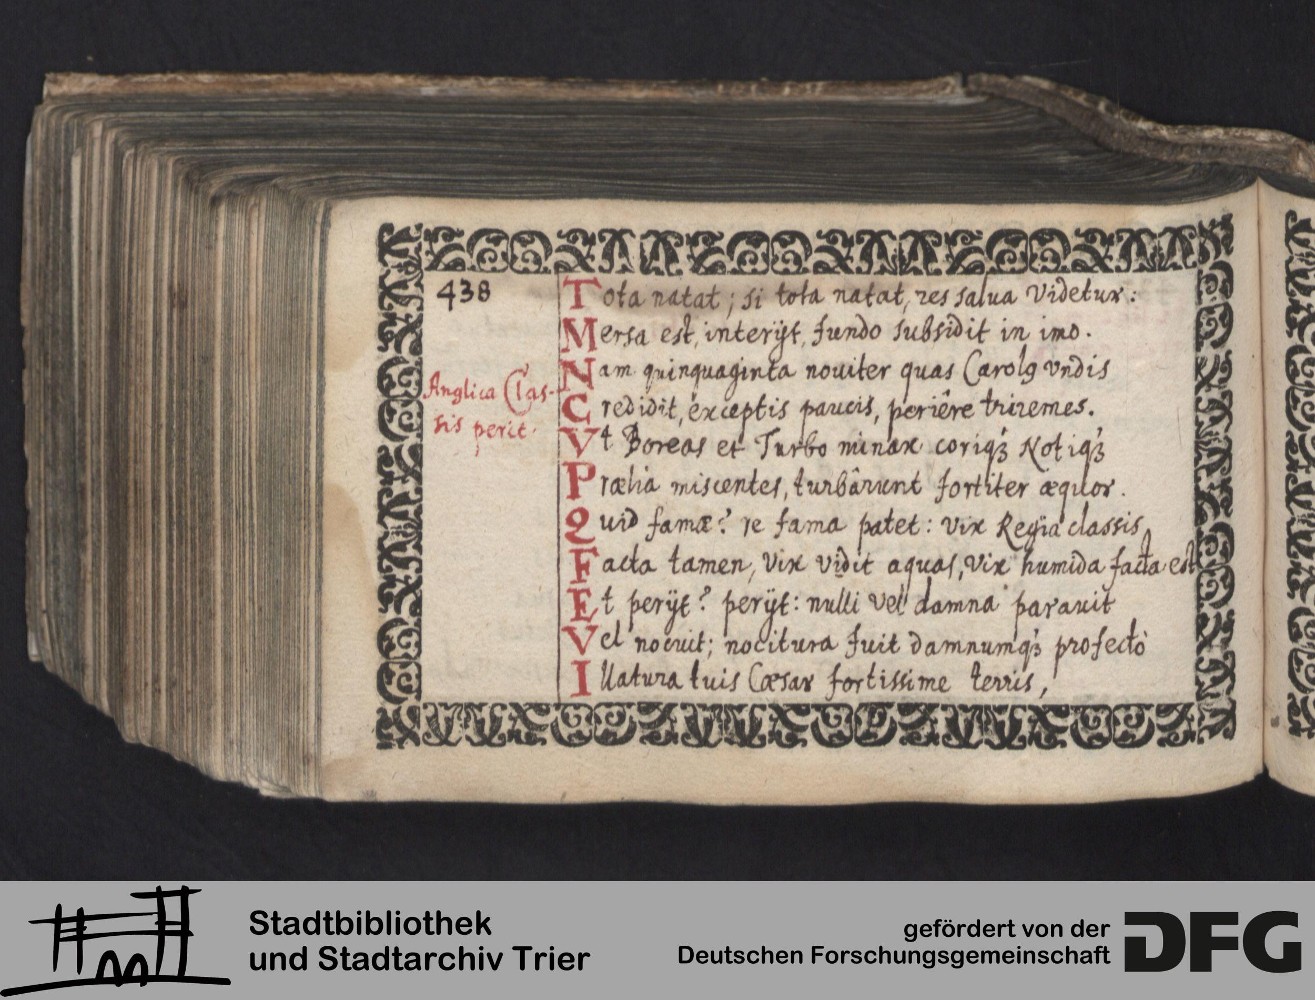 438
Tota natat; si tota natat, res salua videtur:
Mersa est, interijt, fundo subsidit in imo.
Nam quinquaginta nouiter quas Carolꝰ vndis
Anglica Clas-
Credidit, exceptis paucis, periêre triremes.
sis perit.
Vt Boreas et Turbo minax coriqꝫ Notiqꝫ
Prælia miscentes, turbârunt fortiter æquor.
Quid famæ? re fama patet: vix Regia classis,
Facta tamen, vix vidit aquas, vix humida facta est
Et perijt? perijt: nulli vel damna parauit
Vel nocuit; nocitura fuit damnumqꝫ profectò
Illatura tuis Cæsar fortissime terris,
Stadtbibliothek
und Stadtarchiv Trier
gefördert von der
Deutschen Forschungsgemeinschaft
DFG